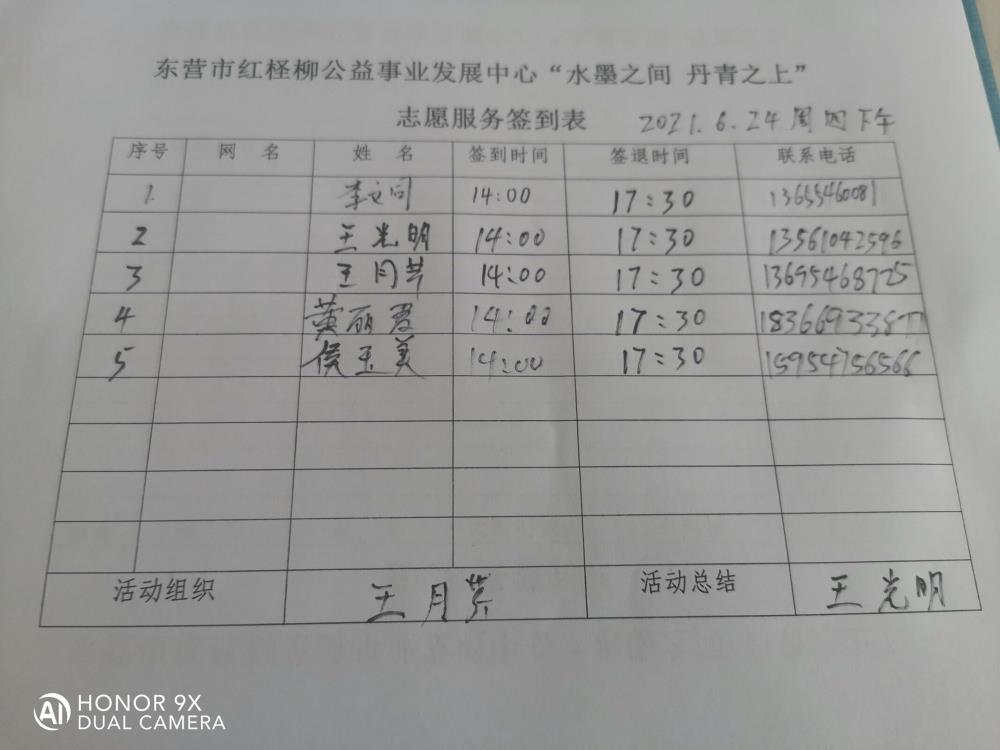 东营市红柽柳公益事业发展中心“水墨之间 丹青之上”
志愿服务签到表 2021.6.24 周四下午
序号 网 名 姓 名 签到时间 签退时间 联系电话
1. 李文同 14:00 17:30 13655460081
2 王光明 14:00 17:30 13561042596
3 王月芹 14:00 17:30 13695468725
4 黄丽君 14:00 17:30
5 侯玉美 14:00 17:30 15954756566
活动组织 王月芹 活动总结 王光明
HONOR 9X
DUAL CAMERA